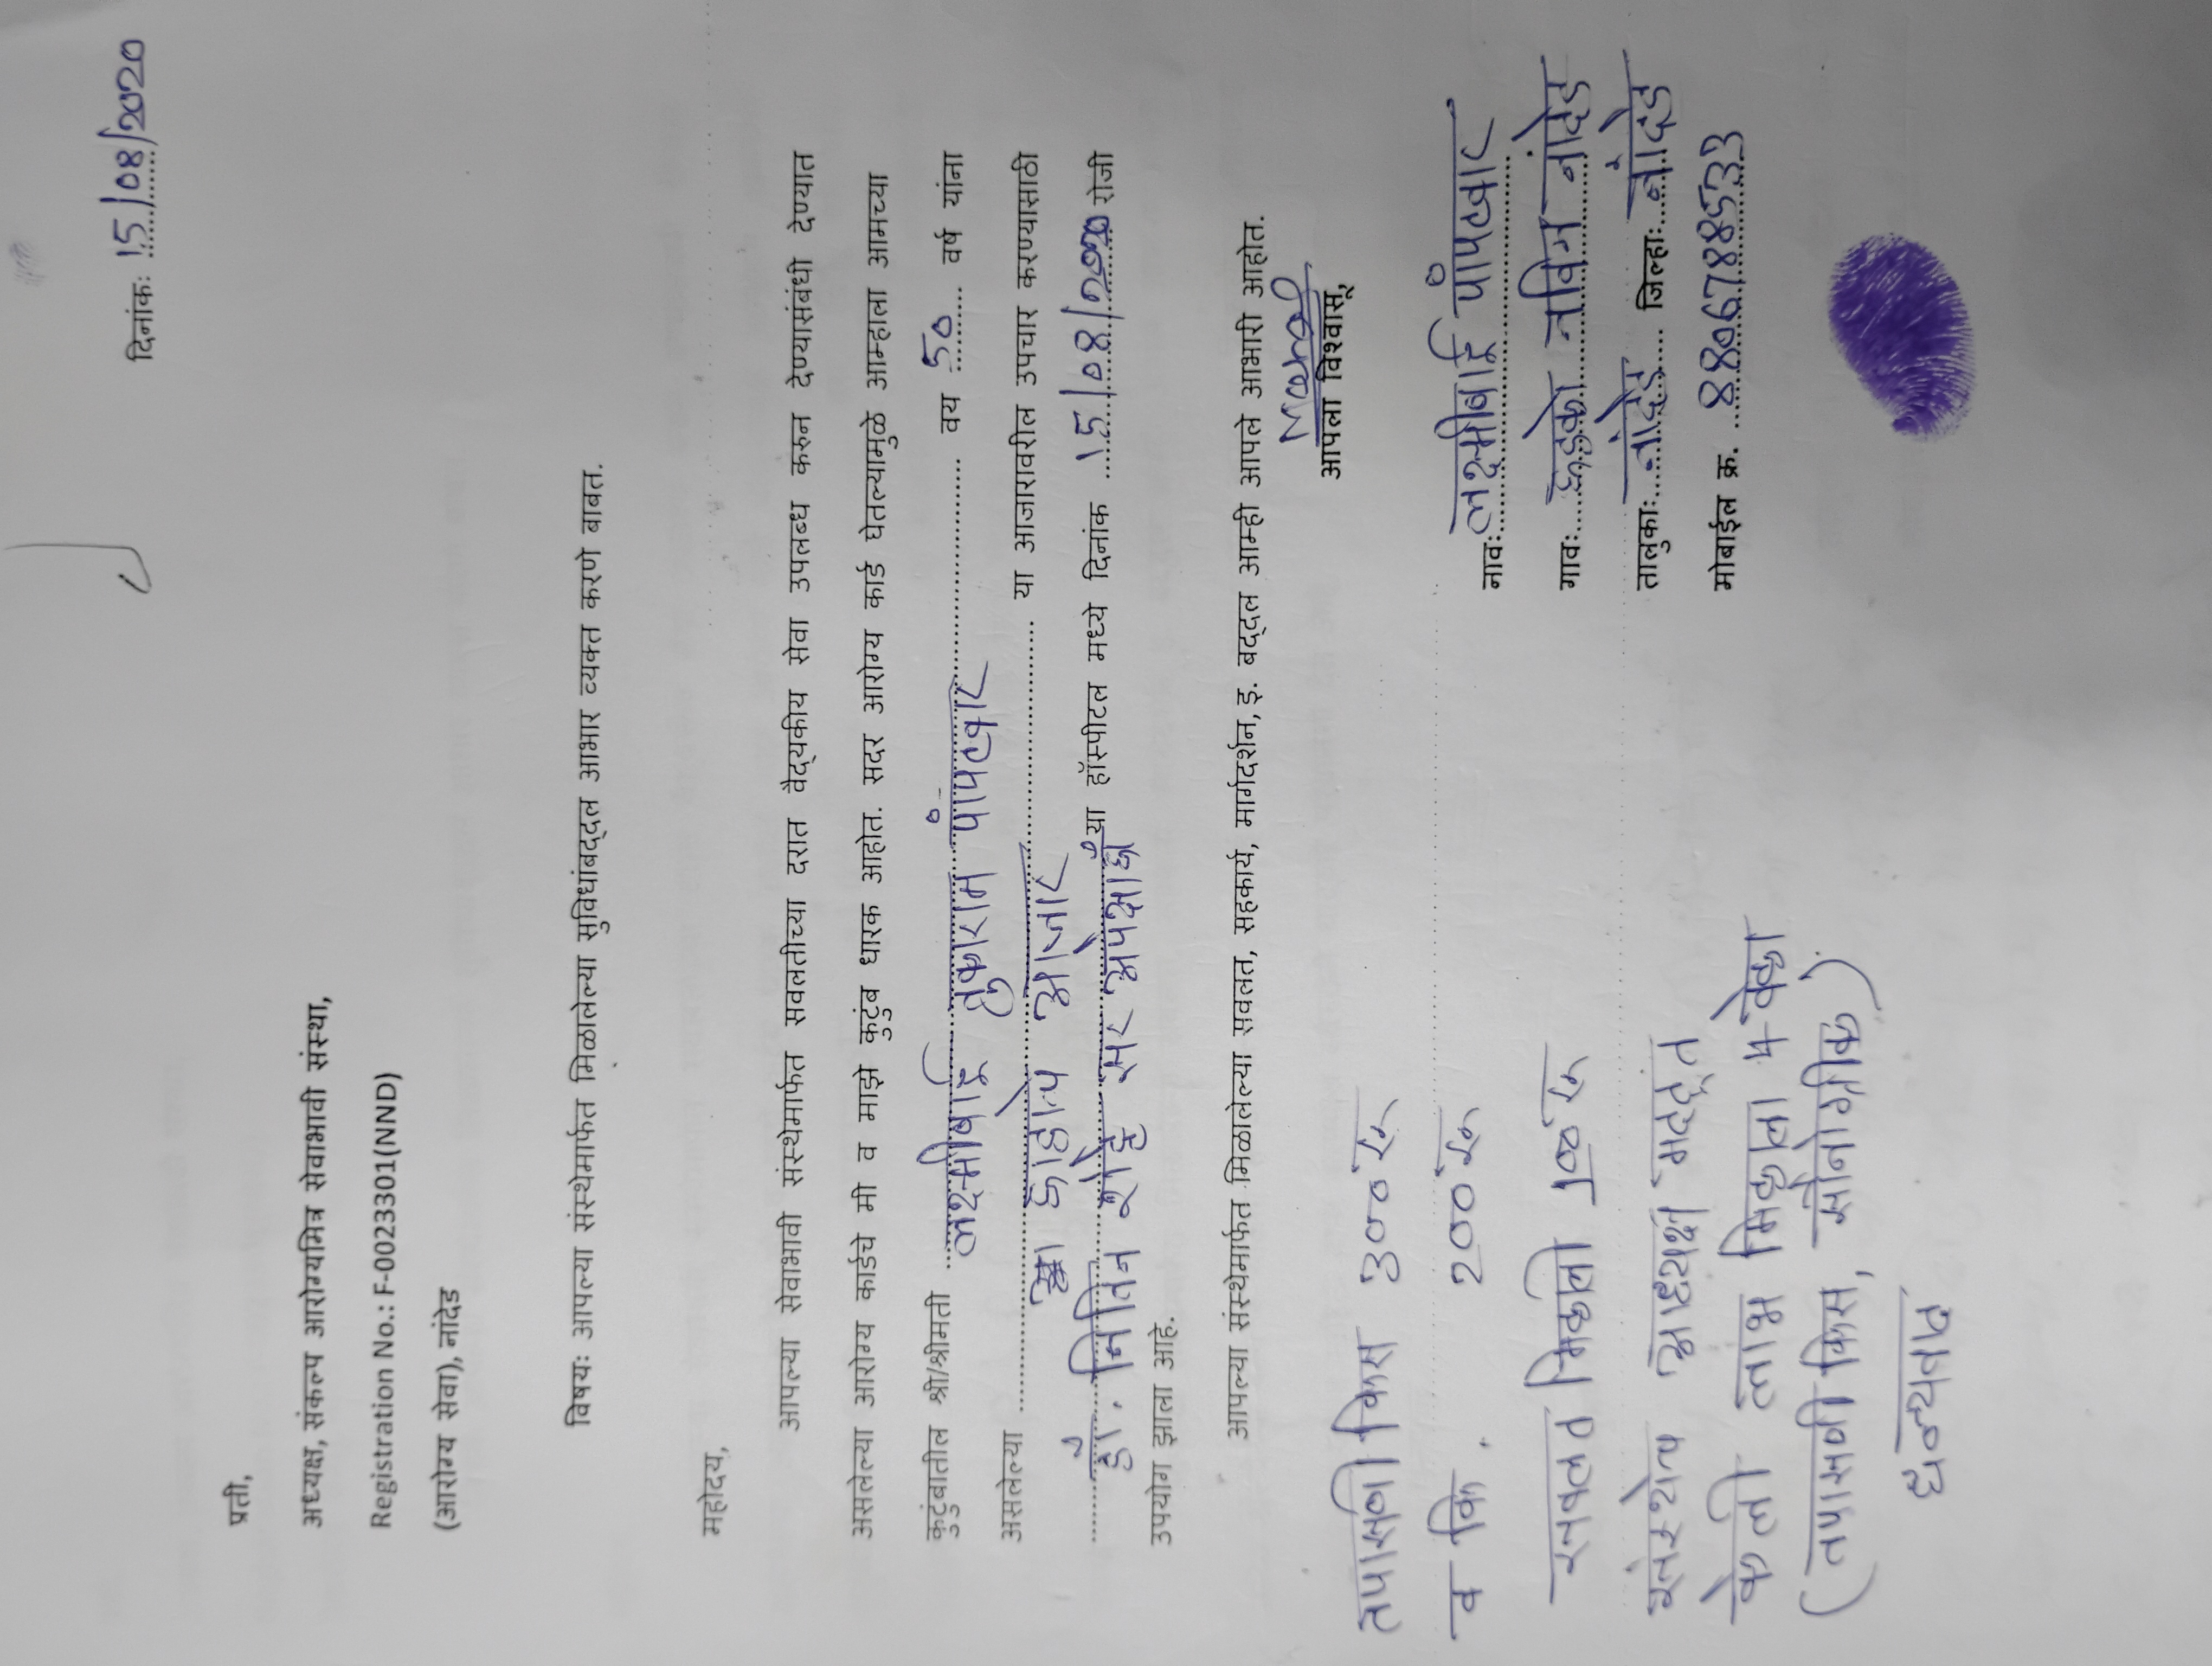 दिनांकः 15/08/2020
प्रती,
अध्यक्ष, संकल्प आरोग्यमित्र सेवाभावी संस्था,
Registration No.: F-0023301(NND)
(आरोग्य सेवा), नांदेड
विषयः आपल्या संस्थेमार्फत मिळालेल्या सुविधांबद्दल आभार व्यक्त करणे बाबत.
महोदय,
आपल्या सेवाभावी संस्थेमार्फत सवलतीच्या दरात वैद्यकीय सेवा उपलब्ध करुन देण्यासंबंधी देण्यात
असलेल्या आरोग्य कार्डचे मी व माझे कुटुंब धारक आहोत. सदर आरोग्य कार्ड घेतल्यामुळे आम्हाला आमच्या
कुटुंबातील श्री/श्रीमती लक्ष्मीबाई तुकाराम पांपटवार वय 50 वर्ष यांना
असलेल्या डोळ्याचे आजार या आजारावरील उपचार करण्यासाठी
डॉ. नितिन जोशी सर या हॉस्पीटल मध्ये दिनांक 15/08/2020 रोजी
उपयोग झाला आहे.
आपल्या संस्थेमार्फत मिळालेल्या सवलत, सहकार्य, मार्गदर्शन, इ. बद्दल आम्ही आपले आभारी आहोत.
आपला विश्वासू,
नावः लक्ष्मीबाई
गावः हडको नविन नांदेड
तालुकाः नांदेड जिल्हाः नांदेड
मोबाईल क्र. 8806788533
तपासणी फिस 300 रु
व कि. 200 रु
सवलत मिळाली 100 रु
संस्थेच अध्यक्ष मदत
केली लाभ मिळाला
(तपासणी फिस, सोनोग्राफि)
धन्यवाद